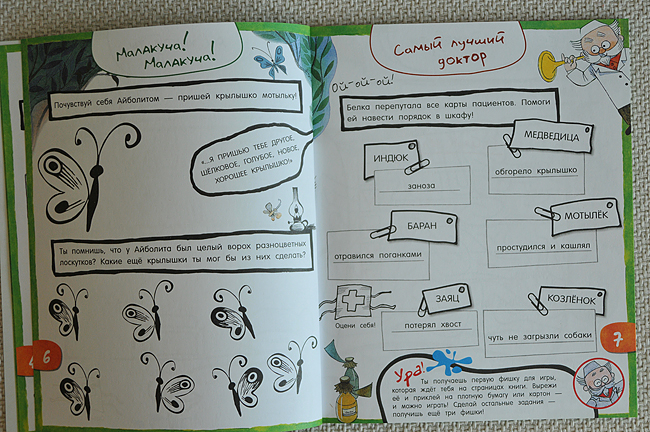 Малакуча!
Малакуча!
Почувствуй себя Айболитом — пришей крылышко мотыльку!
«...Я ПРИШЬЮ ТЕБЕ ДРУГОЕ,
ШЁЛКОВОЕ, ГОЛУБОЕ, НОВОЕ,
ХОРОШЕЕ КРЫЛЫШКО!»
Ты помнишь, что у Айболита был целый ворох разноцветных
лоскутков? Какие ещё крылышки ты мог бы из них сделать?
6
Самый лучший
доктор
Ой-ой-ой!
Белка перепутала все карты пациентов. Помоги
ей навести порядок в шкафу!
МЕДВЕДИЦА
обгорело крылышко
ИНДЮК
заноза
МОТЫЛЁК
простудился и кашлял
БАРАН
отравился поганками
ЗАЯЦ
потерял хвост
КОЗЛЁНОК
чуть не загрызли собаки
Оцени себя!
7
Ура!
Ты получаешь первую фишку для игры,
которая ждёт тебя на страницах книги. Вырежи
её и приклей на плотную бумагу или картон —
и можно играть! Сделай остальные задания —
получишь ещё три фишки!